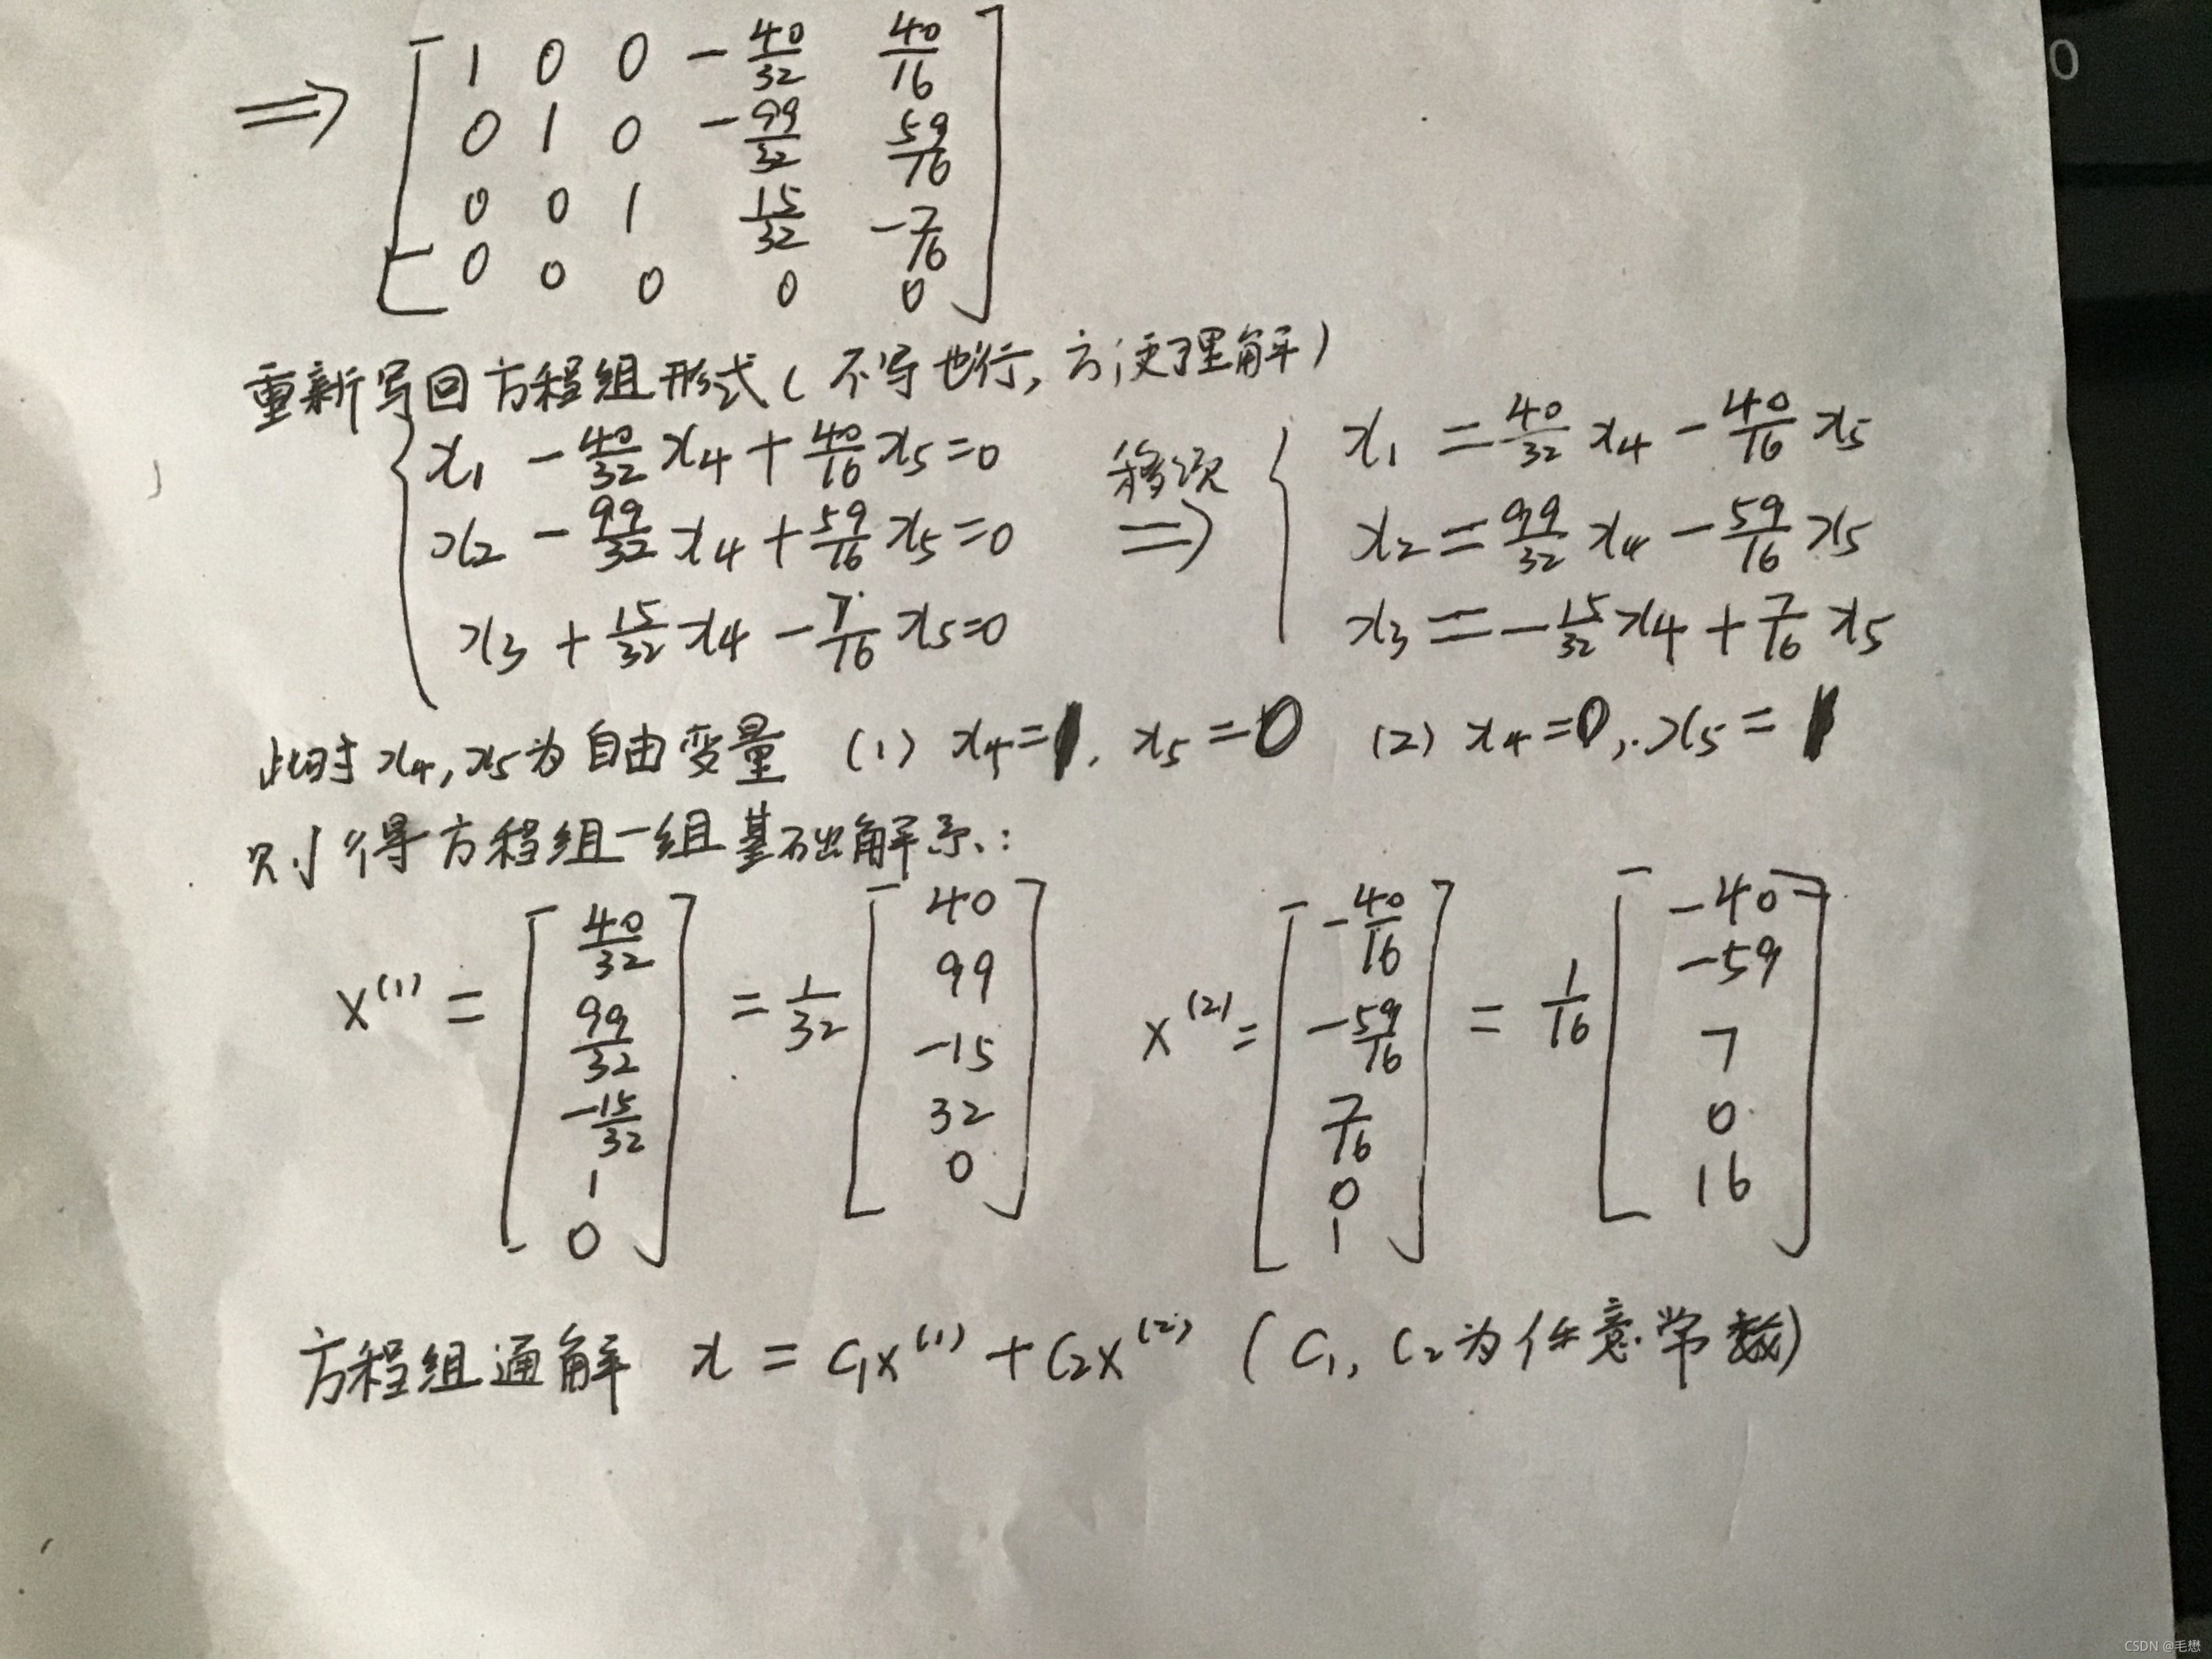 ⇒ [ 1 0 0 -40/32 40/16
0 1 0 -99/32 59/16
0 0 1 15/32 -7/16
0 0 0 0 0 ]
重新写回方程组形式(不写也行,方便理解)
{ x1 - 40/32 x4 + 40/16 x5 = 0
x2 - 99/32 x4 + 59/16 x5 = 0
x3 + 15/32 x4 - 7/16 x5 = 0
移项 ⇒
{ x1 = 40/32 x4 - 40/16 x5
x2 = 99/32 x4 - 59/16 x5
x3 = -15/32 x4 + 7/16 x5
此时 x4, x5 为自由变量 (1) x4=1, x5=0 (2) x4=0, x5=1
则得方程组一组基础解系:
x^(1) = [ 40/32 99/32 -15/32 1 0 ] = 1/32 [ 40 99 -15 32 0 ]
x^(2) = [ -40/16 -59/16 7/16 0 1 ] = 1/16 [ -40 -59 7 0 16 ]
方程组通解 x = C1x^(1) + C2x^(2) (C1, C2为任意常数)
0
CSDN @毛懋